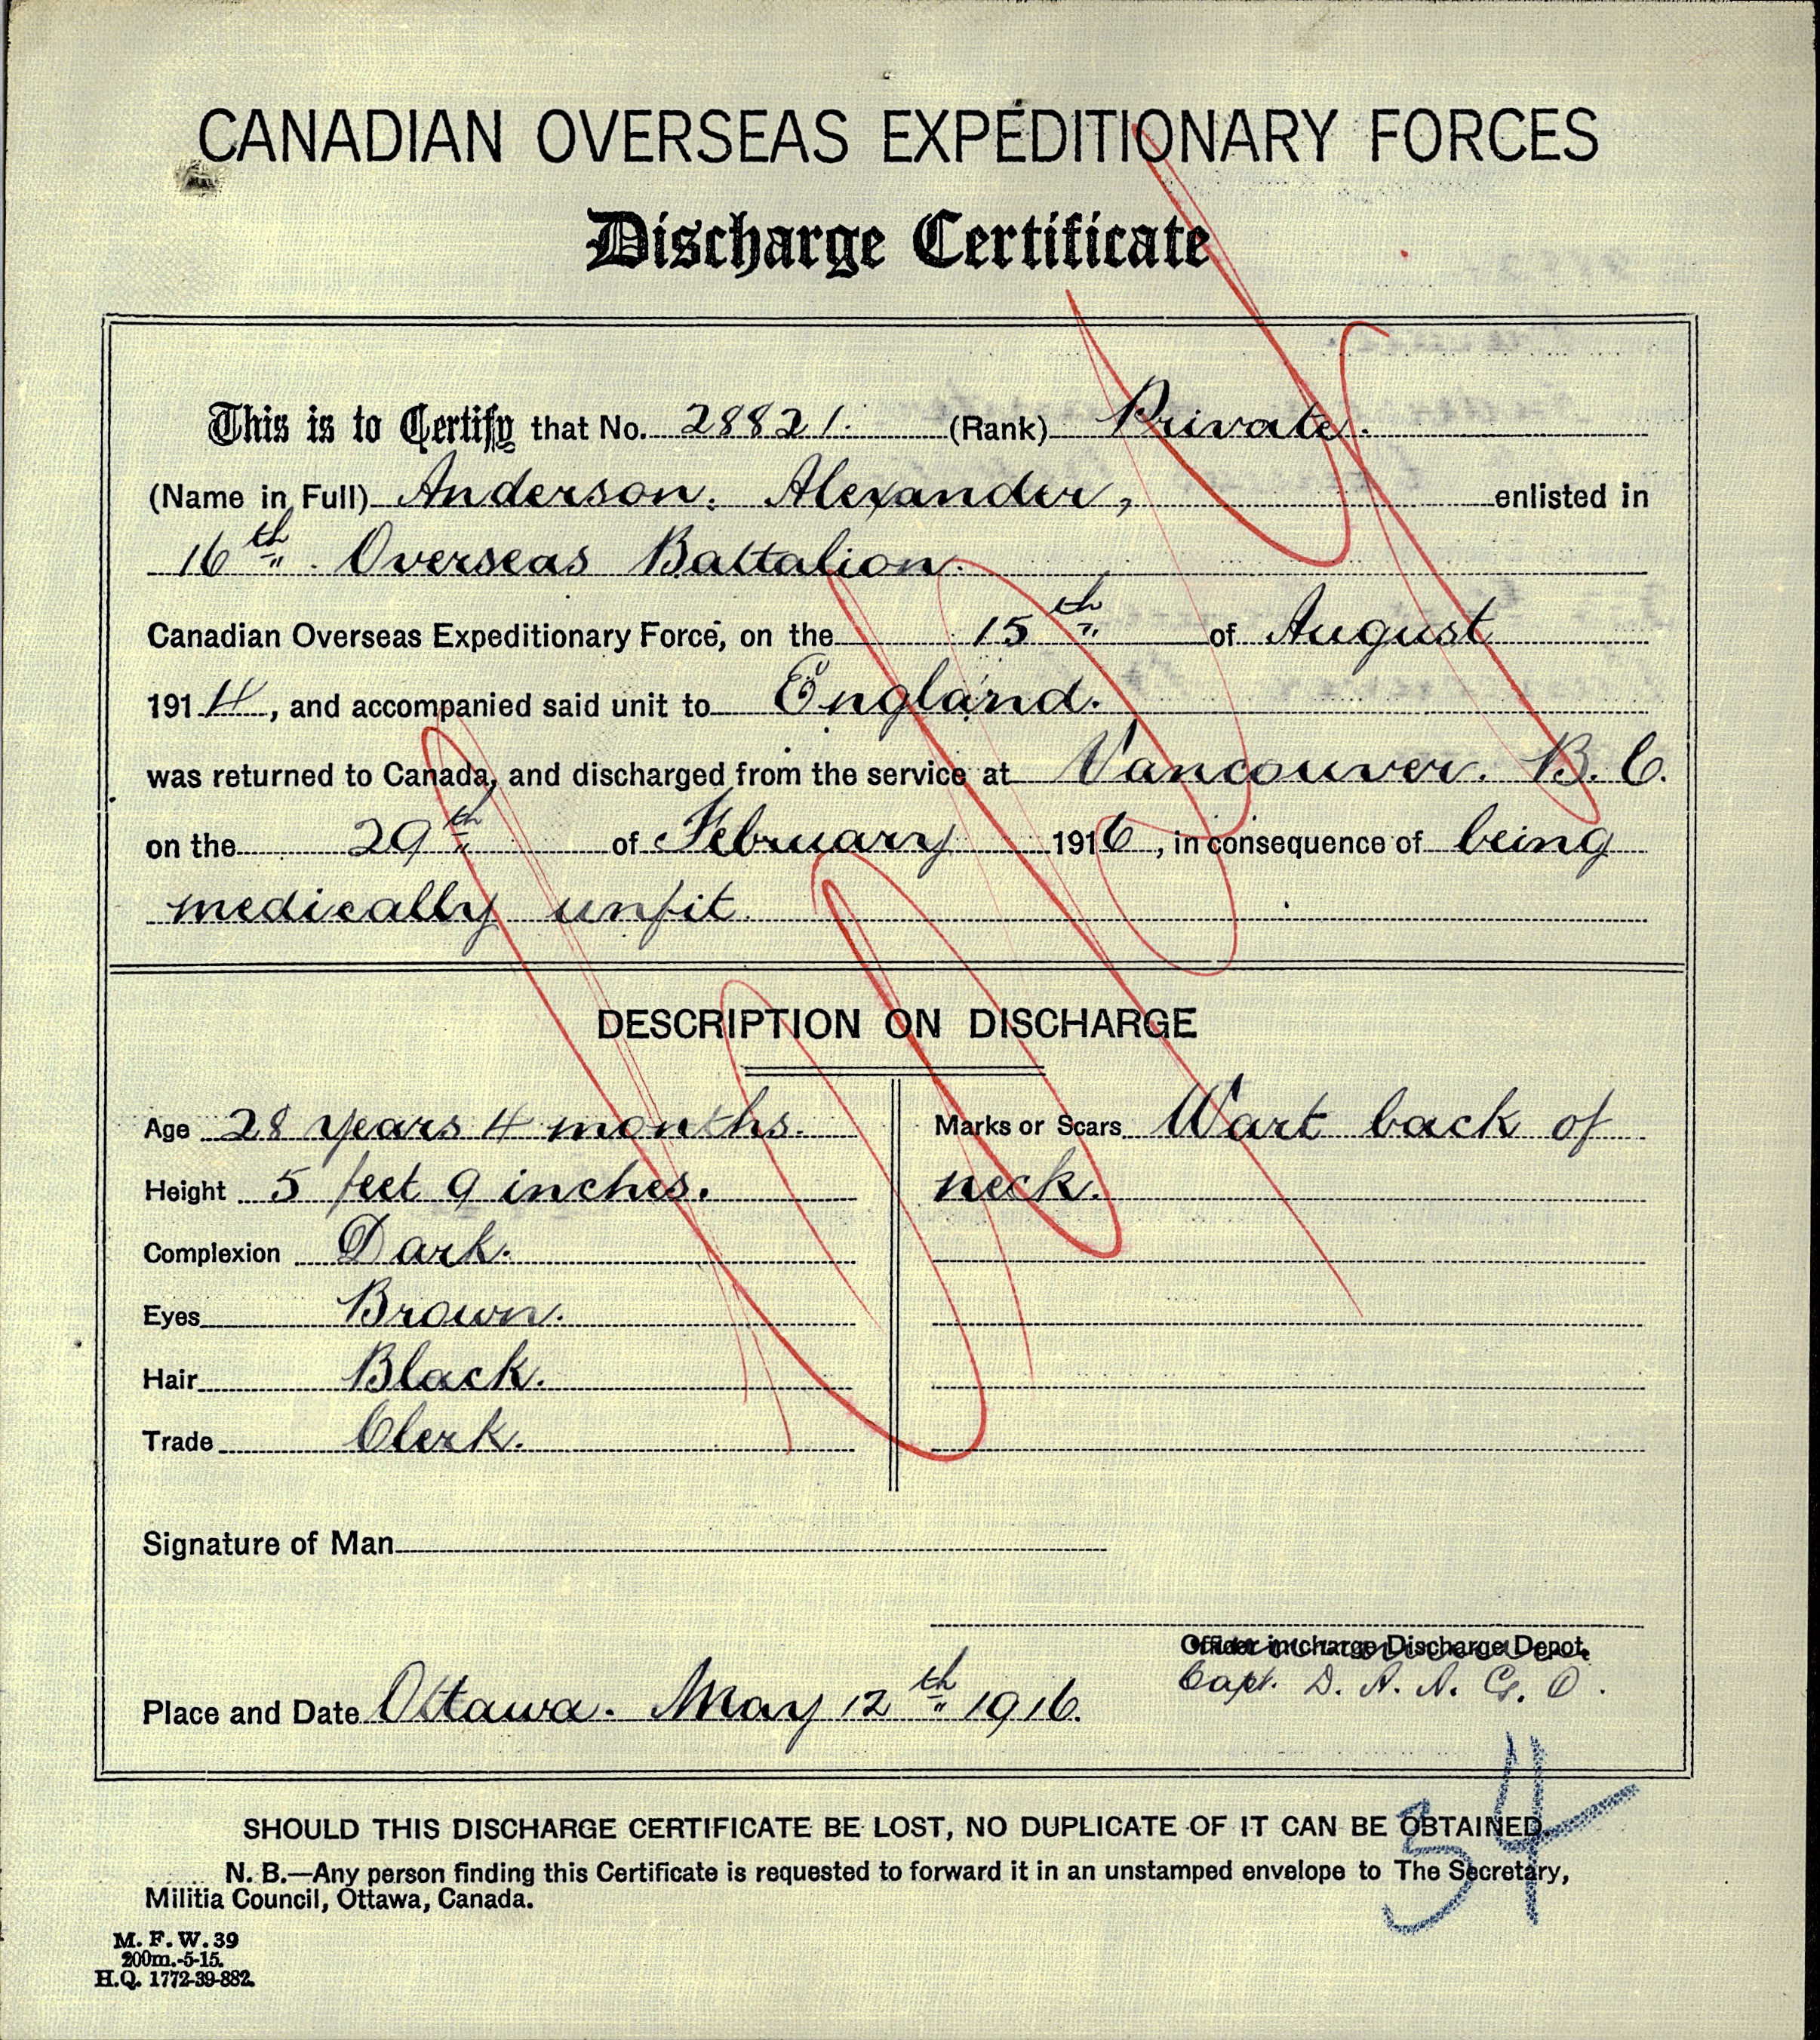 CANADIAN OVERSEAS EXPEDITIONARY FORCES
Discharge Certificate
This is to Certify that No. 28821. (Rank) Private.
(Name in Full) Anderson. Alexander, enlisted in
16th Overseas Battalion.
Canadian Overseas Expeditionary Force, on the 15th of August
1914, and accompanied said unit to England.
was returned to Canada, and discharged from the service at Vancouver. B.C.
on the 29th of February 1916, in consequence of being
medically unfit.
COPY
DESCRIPTION ON DISCHARGE
Age 28 years 4 months.
Height 5 feet 9 inches.
Complexion Dark.
Eyes Brown.
Hair Black.
Trade Clerk.
Marks or Scars Wart back of
neck.
Signature of Man
Officer in charge Discharge Depot.
Capt. D. A. A. G. O.
Place and Date Ottawa. May 12th 1916.
54
SHOULD THIS DISCHARGE CERTIFICATE BE LOST, NO DUPLICATE OF IT CAN BE OBTAINED.
N. B.—Any person finding this Certificate is requested to forward it in an unstamped envelope to The Secretary,
Militia Council, Ottawa, Canada.
M. F. W. 39
200m.-5-15.
H.Q. 1772-39-882.